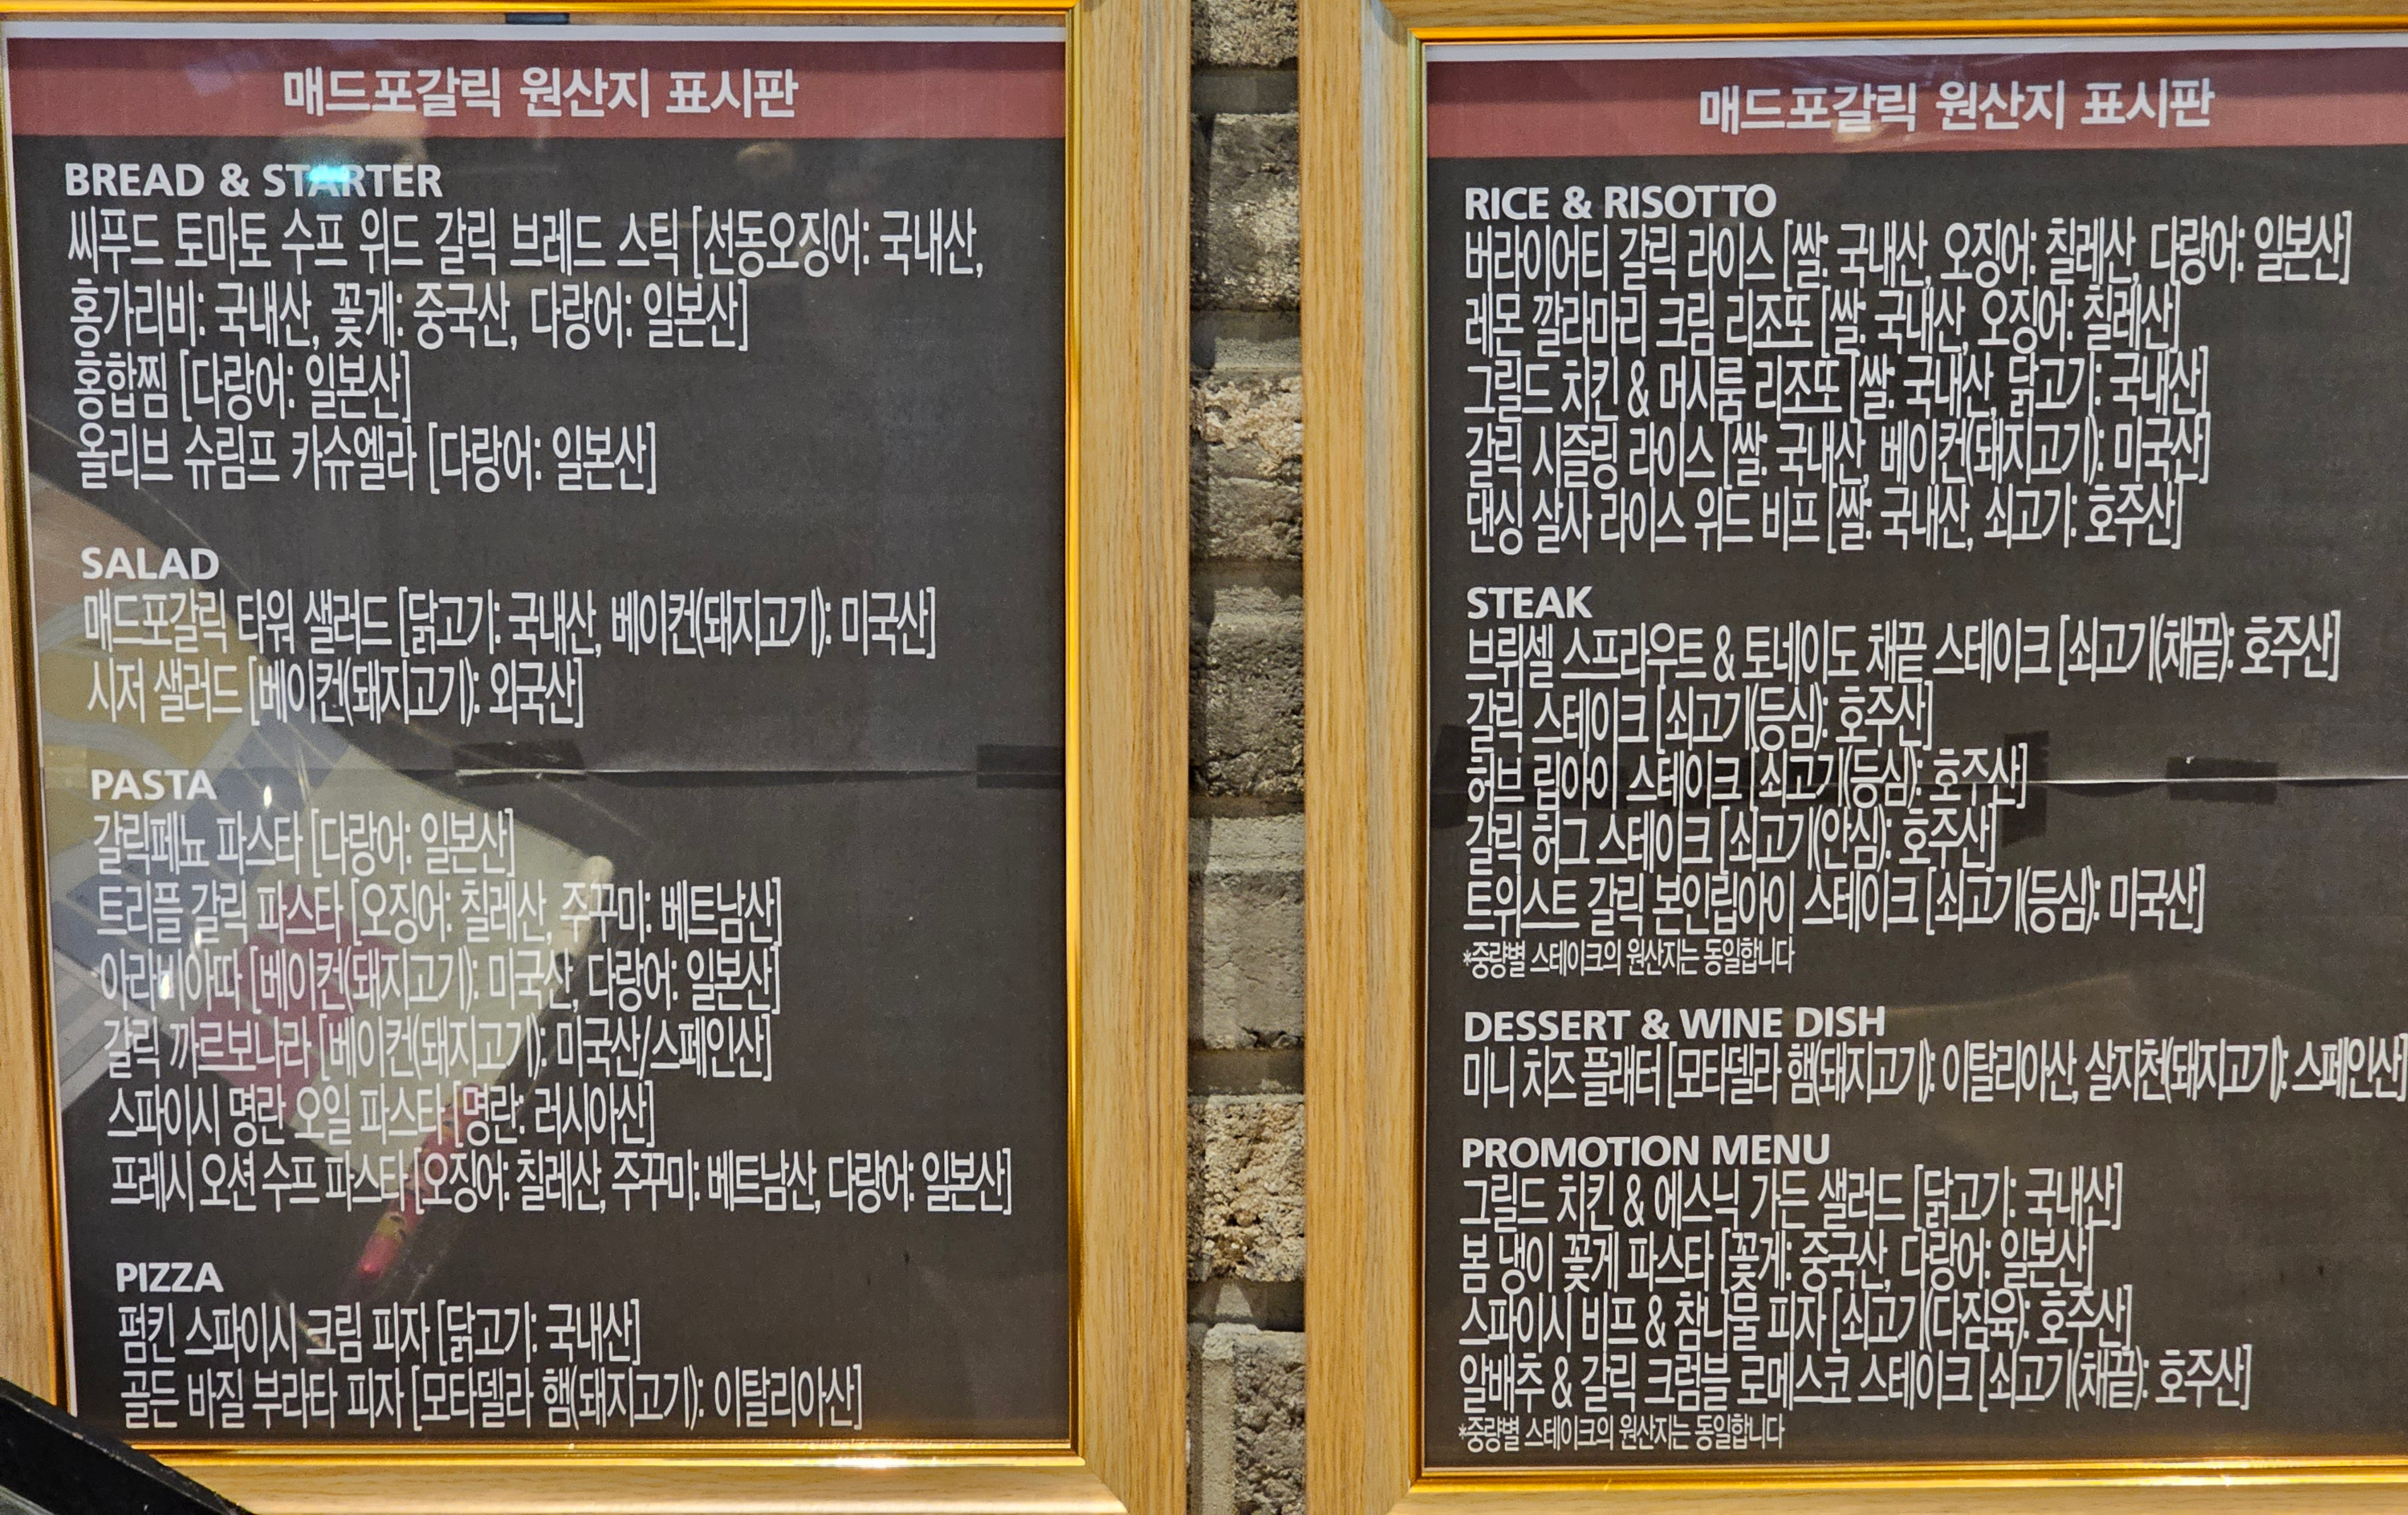 매드포갈릭 원산지 표시판
BREAD & STARTER
씨푸드 토마토 수프 위드 갈릭 브레드 스틱 [선동오징어: 국내산,
홍가리비: 국내산, 꽃게: 중국산, 다랑어: 일본산]
홍합찜 [다랑어: 일본산]
올리브 슈림프 카슈엘라 [다랑어: 일본산]
SALAD
매드포갈릭 타워 샐러드 [닭고기: 국내산, 베이컨(돼지고기): 미국산]
시저 샐러드 [베이컨(돼지고기): 외국산]
PASTA
갈릭페뇨 파스타 [다랑어: 일본산]
트리플 갈릭 파스타 [오징어: 칠레산, 주꾸미: 베트남산]
아라비아따 [베이컨(돼지고기): 미국산, 다랑어: 일본산]
갈릭 까르보나라 [베이컨(돼지고기): 미국산/스페인산]
스파이시 명란 오일 파스타 [명란: 러시아산]
프레시 오션 수프 파스타 [오징어: 칠레산, 주꾸미: 베트남산, 다랑어: 일본산]
PIZZA
펌킨 스파이시 크림 피자 [닭고기: 국내산]
골든 바질 부라타 피자 [모타델라 햄(돼지고기): 이탈리아산]
매드포갈릭 원산지 표시판
RICE & RISOTTO
버라이어티 갈릭 라이스 [쌀: 국내산, 오징어: 칠레산, 다랑어: 일본산]
레몬 깔라마리 크림 리조또 [쌀: 국내산, 오징어: 칠레산]
그릴드 치킨 & 머시룸 리조또 [쌀: 국내산, 닭고기: 국내산]
갈릭 시즐링 라이스 [쌀: 국내산, 베이컨(돼지고기): 미국산]
댄싱 살사 라이스 위드 비프 [쌀: 국내산, 쇠고기: 호주산]
STEAK
브뤼셀 스프라우트 & 토네이도 채끝 스테이크 [쇠고기(채끝): 호주산]
갈릭 스테이크 [쇠고기(등심): 호주산]
허브 립아이 스테이크 [쇠고기(등심): 호주산]
갈릭 허그 스테이크 [쇠고기(안심): 호주산]
트위스트 갈릭 본인립아이 스테이크 [쇠고기(등심): 미국산]
*중량별 스테이크의 원산지는 동일합니다
DESSERT & WINE DISH
미니 치즈 플래터 [모타델라 햄(돼지고기): 이탈리아산, 살지천(돼지고기): 스페인산]
PROMOTION MENU
그릴드 치킨 & 에스닉 가든 샐러드 [닭고기: 국내산]
봄 냉이 꽃게 파스타 [꽃게: 중국산, 다랑어: 일본산]
스파이시 비프 & 참나물 피자 [쇠고기(다짐육): 호주산]
알배추 & 갈릭 크럼블 로메스코 스테이크 [쇠고기(채끝): 호주산]
*중량별 스테이크의 원산지는 동일합니다